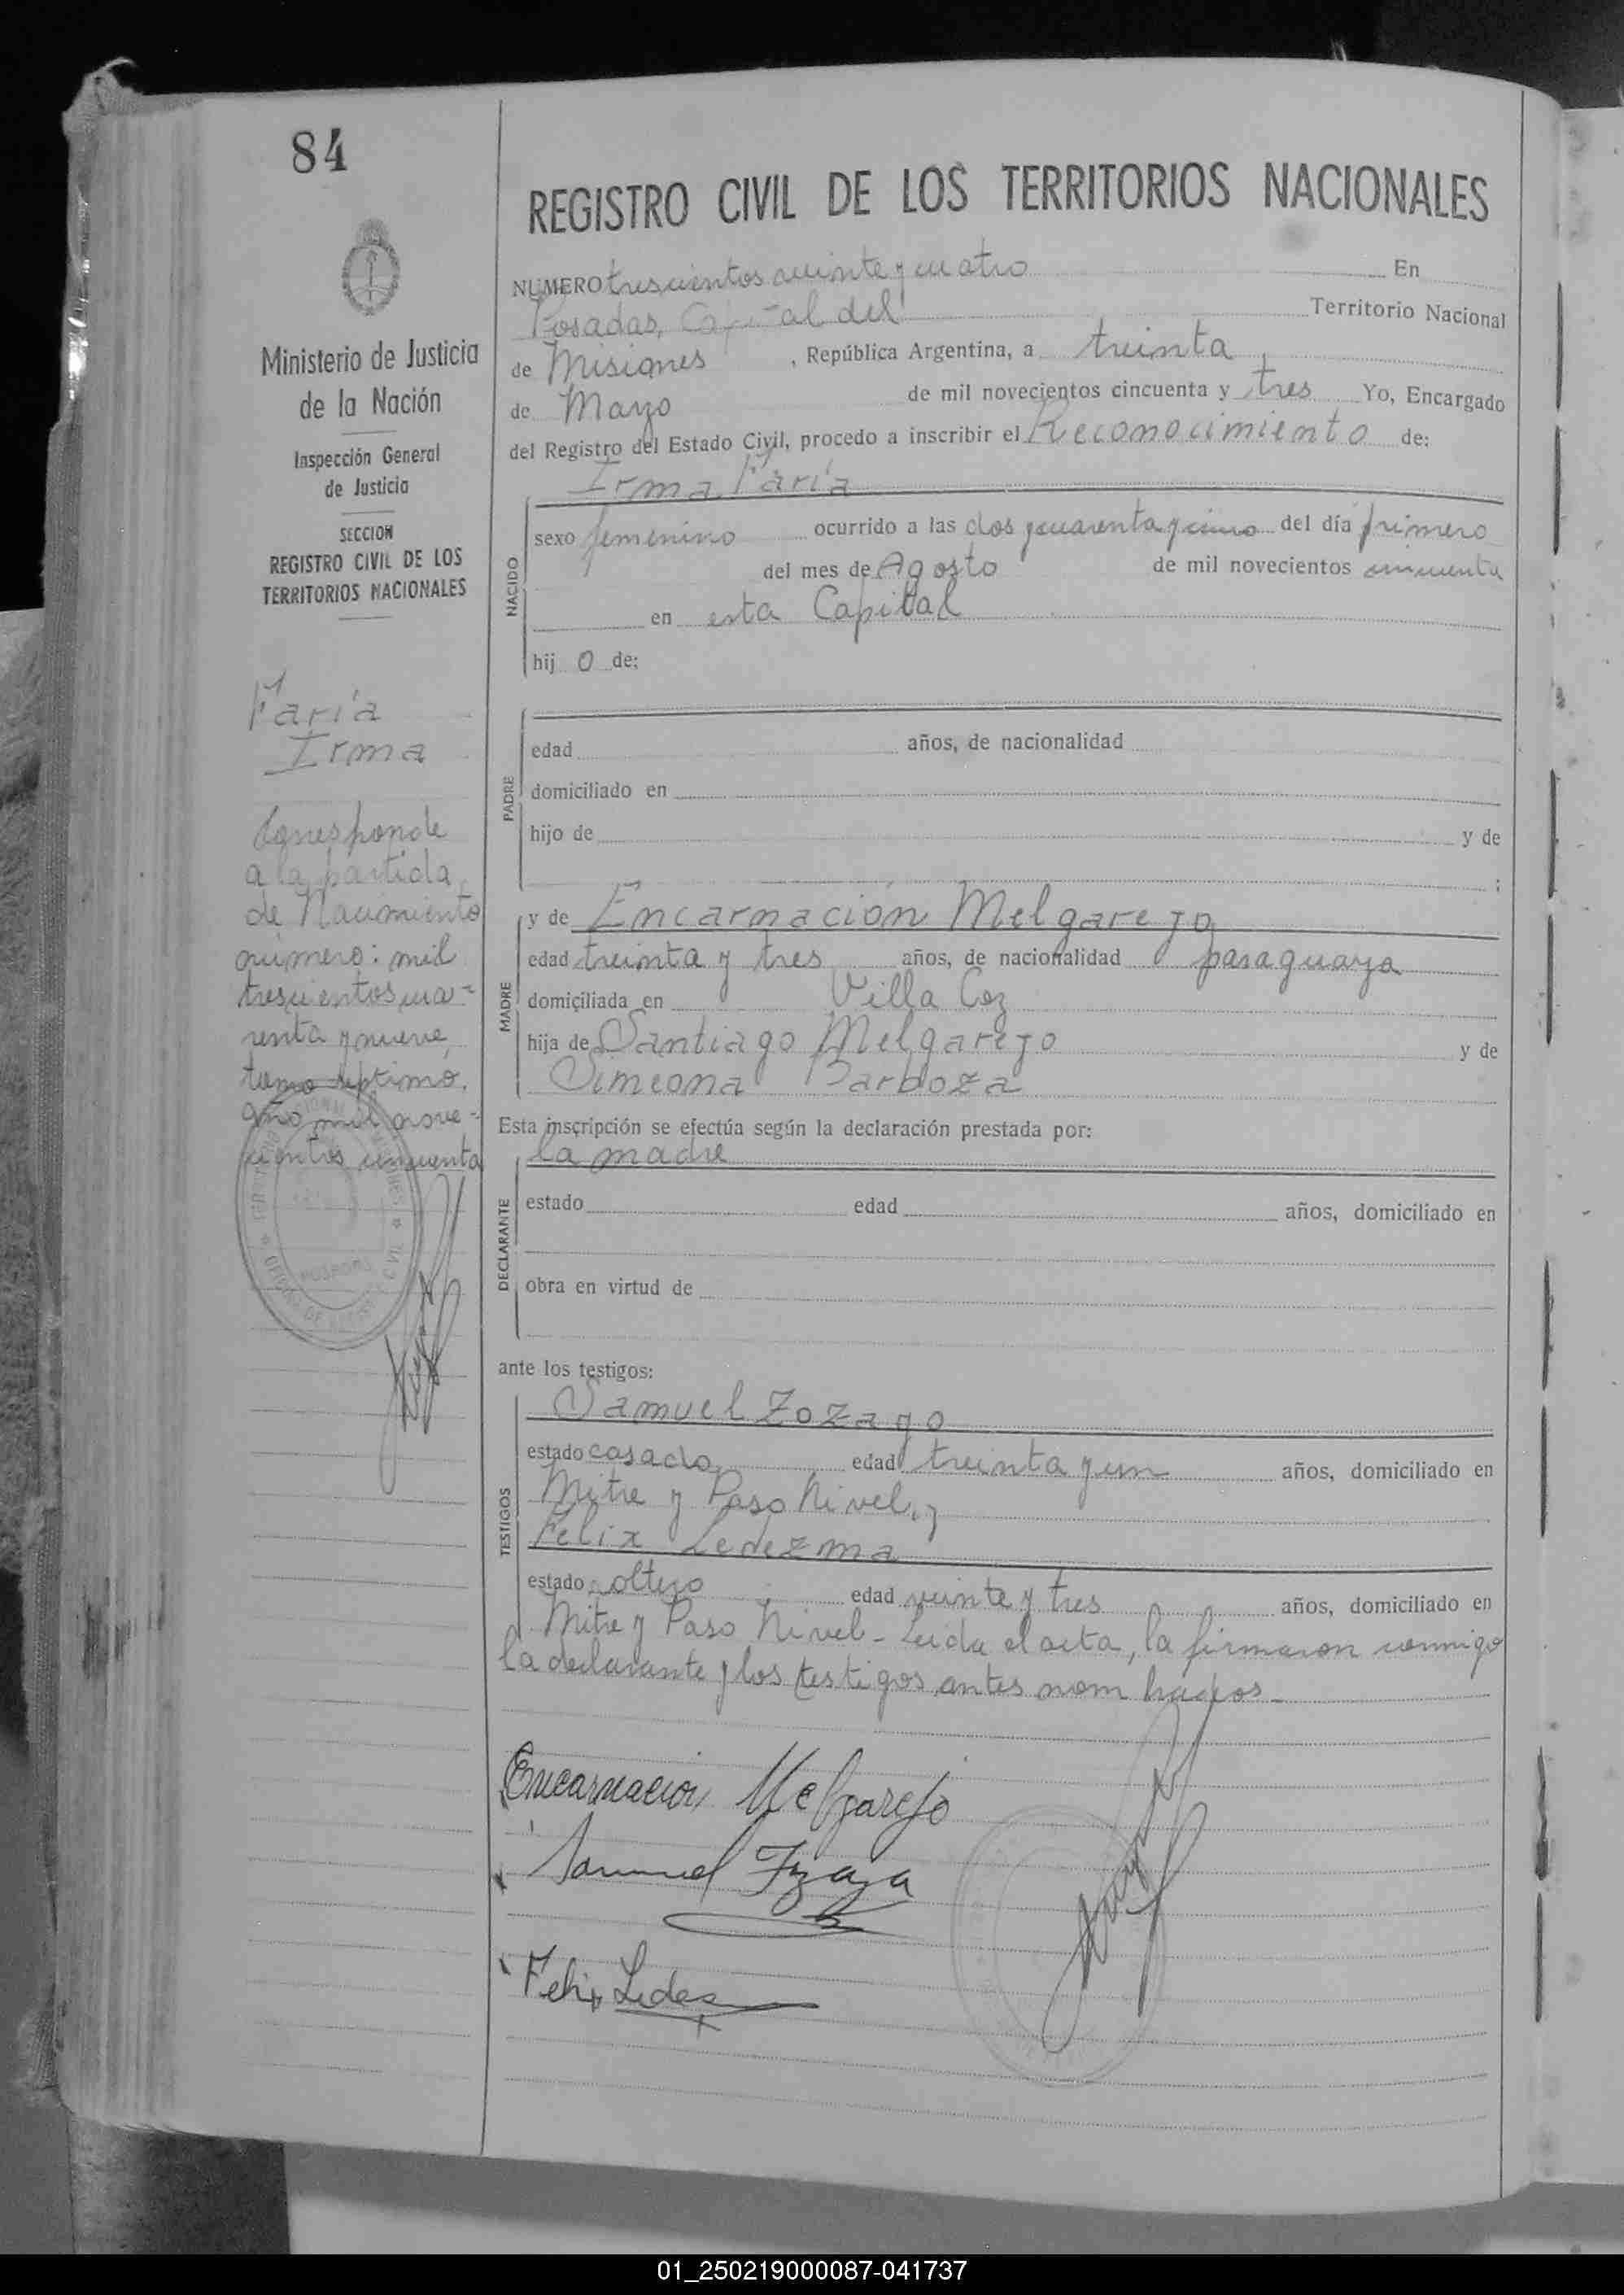 84
Ministerio de Justicia
de la Nación
Inspección General
de Justicia
SECCION
REGISTRO CIVIL DE LOS
TERRITORIOS NACIONALES
Faría
Irma
Corresponde
a la partida
de Nacimiento
número: mil
trescientos cua-
renta y nueve,
tomo septimo,
año mil nove-
cientos cincuenta
REGISTRO CIVIL DE LOS TERRITORIOS NACIONALES
NUMERO trescientos veinte y cuatro En
Posadas, Capital del Territorio Nacional
de Misiones, República Argentina, a treinta
de Mayo de mil novecientos cincuenta y tres Yo, Encargado
del Registro del Estado Civil, procedo a inscribir el Reconocimiento de:
Irma Faría
NACIDO
sexo femenino ocurrido a las dos y cuarenta y cinco del día primero
del mes de Agosto de mil novecientos cincuenta
en esta Capital
hij o de:
PADRE
edad años, de nacionalidad
domiciliado en
hijo de y de
:
MADRE
y de Encarnación Melgarejo
edad treinta y tres años, de nacionalidad paraguaya
domiciliada en Villa Coz
hija de Santiago Melgarejo y de
Simeona Barboza
Esta inscripción se efectúa según la declaración prestada por:
la madre
DECLARANTE
estado edad años, domiciliado en
obra en virtud de
ante los testigos:
TESTIGOS
Samuel Zozayo
estado casado edad treinta y un años, domiciliado en
Mitre y Paso Nivel, y
Felix Ledezma
estado soltero edad veinte y tres años, domiciliado en
Mitre y Paso Nivel - Leida el acta, la firmaron conmigo
la declarante y los testigos antes nombrados -
Encarnacion Melgarejo
Samuel
Felix Ledes
POSADAS
01_250219000087-041737